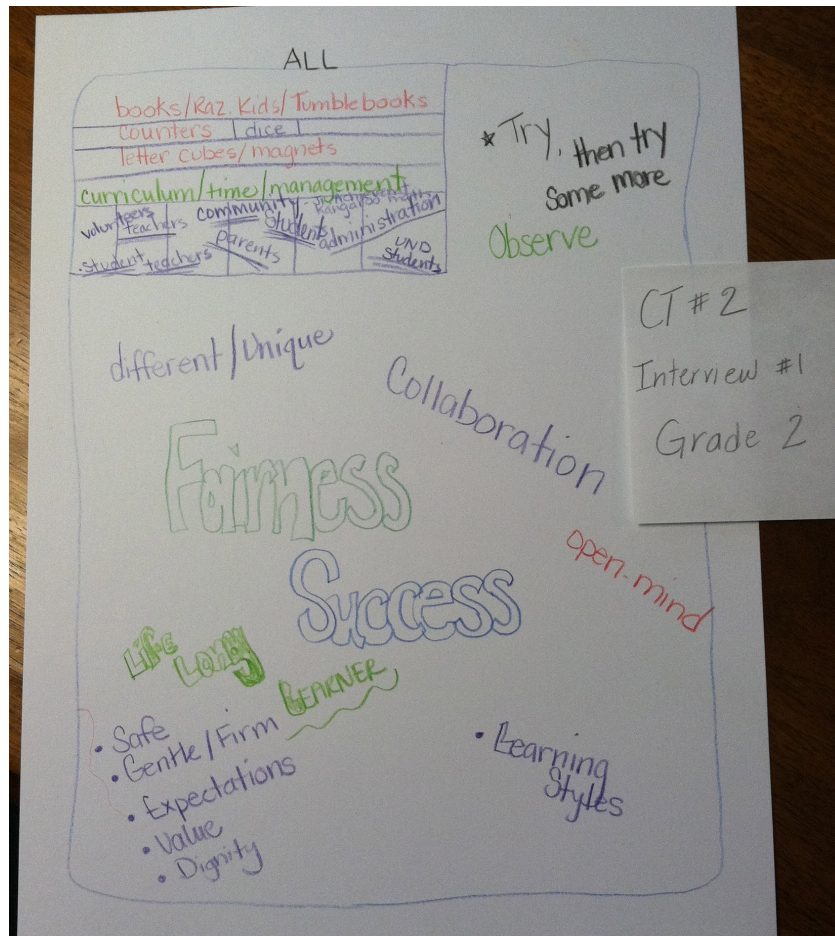 ALL
books/Raz Kids/Tumblebooks
counters | dice |
letter cubes/magnets
curriculum/time/management
volunteers
teachers
community
students
administration
parents
UND
Students
student teachers
* Try, then try
some more
Observe
CT # 2
Interview #1
Grade 2
different/Unique
Collaboration
Fairness
open-mind
Success
Life
Long
Learner
• Safe
• Gentle/Firm
• Expectations
• Value
• Dignity
• Learning
Styles